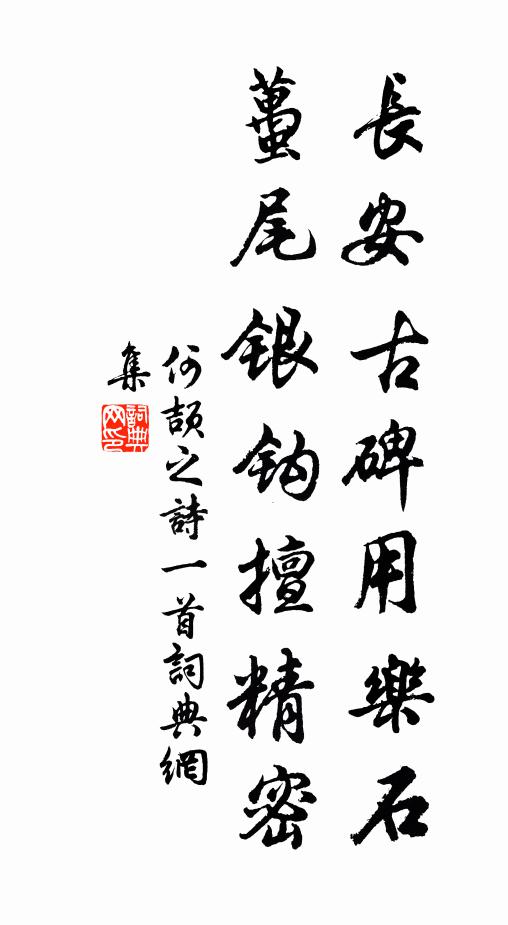 長安古碑用樂石
蠆尾銀鈎擅精密
何頡之詩一首詞典網
集
詞典
网印